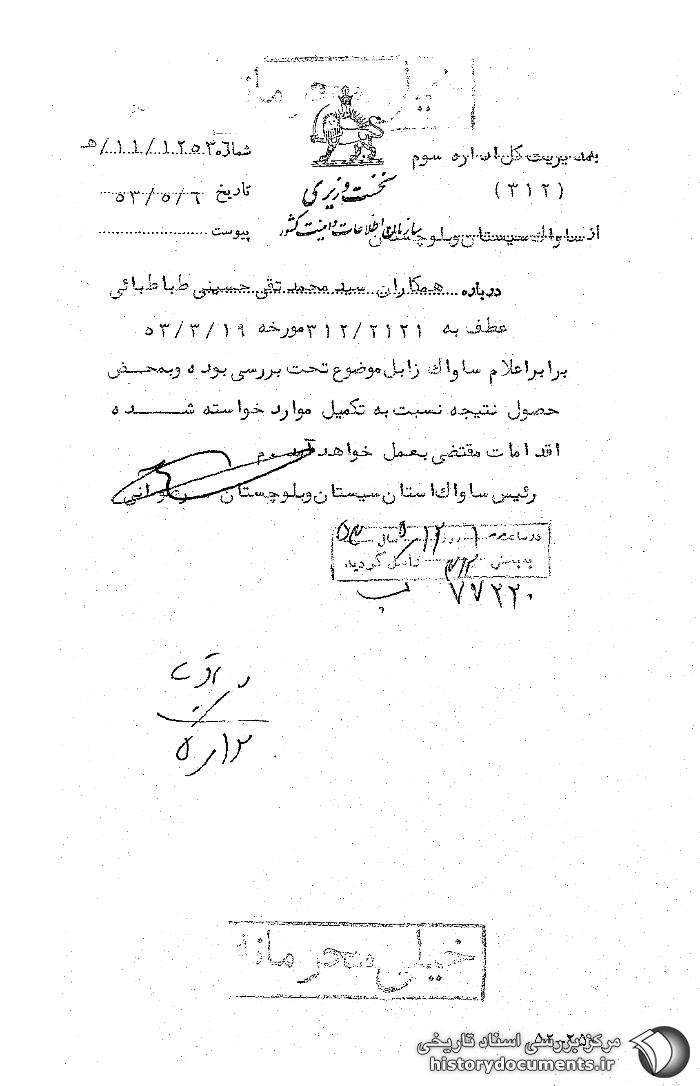 خیلی محرمانه
بمدیریت کل اداره سوم
(۳۱۲)
از ساواك سیستان وبلوچستان
نخست وزیری
سازمان اطلاعات و امنیت کشور
شماره ۱۲۵۳۶/۱۱/هـ
تاریخ ۵۳/۵/۶
پیوست
درباره همکاران سید محمد تقی حسینی طباطبائی
عطف به ۳۱۲/۲۱۲۱ مورخه ۵۳/۳/۱۹
برابر اعلام ساواك زابل موضوع تحت بررسی بوده وبمحض
حصول نتیجه نسبت به تکمیل موارد خواسته شده
اقدامات مقتضی بعمل خواهد آمد م
رئیس ساواك استان سیستان وبلوچستان
در ساعت روز ۱۲/۵ سال ۵۳
به بخش ۳۱۲ واصل گردید
۷۷۲۲۰
۱۲/۵
خیلی محرمانه
مرکز بررسی اسناد تاریخی
historydocuments.ir